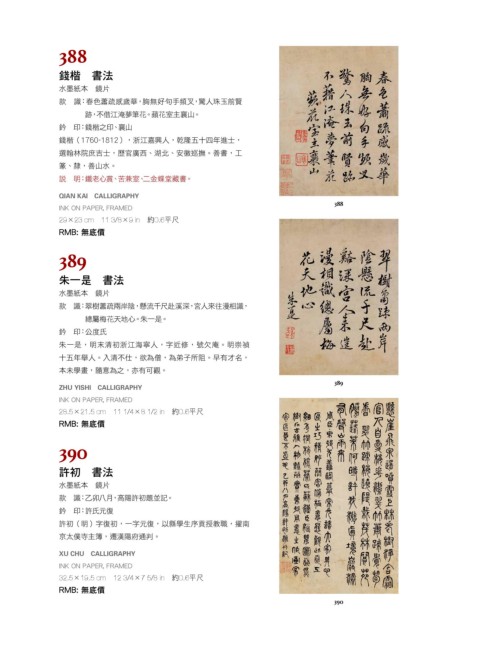 388
錢楷　書法
水墨紙本　鏡片
款　識：春色蕭疏感歲華，胸無好句手頻叉，驚人珠玉前賢
跡，不借江淹夢筆花。蘋花室主裴山。
鈐　印：錢楷之印、裴山
錢楷（1760-1812），浙江嘉興人，乾隆五十四年進士，
選翰林院庶吉士，歷官廣西、湖北、安徽巡撫。善書，工
篆、隸，善山水。
說　明：鐵老心賞、苦兼室、二金蝶堂藏書。
QIAN KAI　CALLIGRAPHY
INK ON PAPER, FRAMED
29×23 cm　11 3/8×9 in　約0.6平尺
RMB: 無底價
389
朱一是　書法
水墨紙本　鏡片
款　識：翠樹蕭疏兩岸陰，懸流千尺赴溪深，宮人來往漫相識，
總屬梅花天地心。朱一是。
鈐　印：公度氏
朱一是，明末清初浙江海寧人，字近修，號欠庵。明崇禎
十五年舉人。入清不仕，欲為僧，為弟子所阻。早有才名，
本未學畫，隨意為之，亦有可觀。
ZHU YISHI　CALLIGRAPHY
INK ON PAPER, FRAMED
28.5×21.5 cm　11 1/4×8 1/2 in　約0.6平尺
RMB: 無底價
390
許初　書法
水墨紙本　鏡片
款　識：乙卯八月，高陽許初題並記。
鈐　印：許氏元復
許初（明）字復初，一字元復，以縣學生序貢授教職，擢南
京太僕寺主簿，遷漢陽府通判。
XU CHU　CALLIGRAPHY
INK ON PAPER, FRAMED
32.5×19.5 cm　12 3/4×7 5/8 in　約0.6平尺
RMB: 無底價
春色蕭疏感歲華
胸無好句手頻叉
驚人珠玉前賢跡
不藉江淹夢筆花
蘋花室主裴山
388
翠樹蕭疎兩岸
陰懸流千尺赴
谿深宮人來進
漫相識總屬梅
花天地心
朱一是
389
390